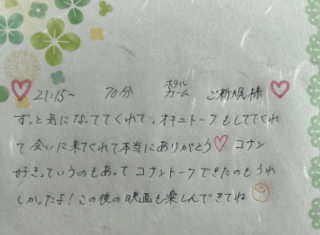 ♡ 21:15~ 70分 ホテルカーム ご新規様 ♡
ずっと気になっててくれて、オキニトークもしててくれ
て会いに来てくれて本当にありがとう♡ コナン
好きっていうのもあってコナントークできたのもうれ
しかったよ!この後の映画も楽しんできてね